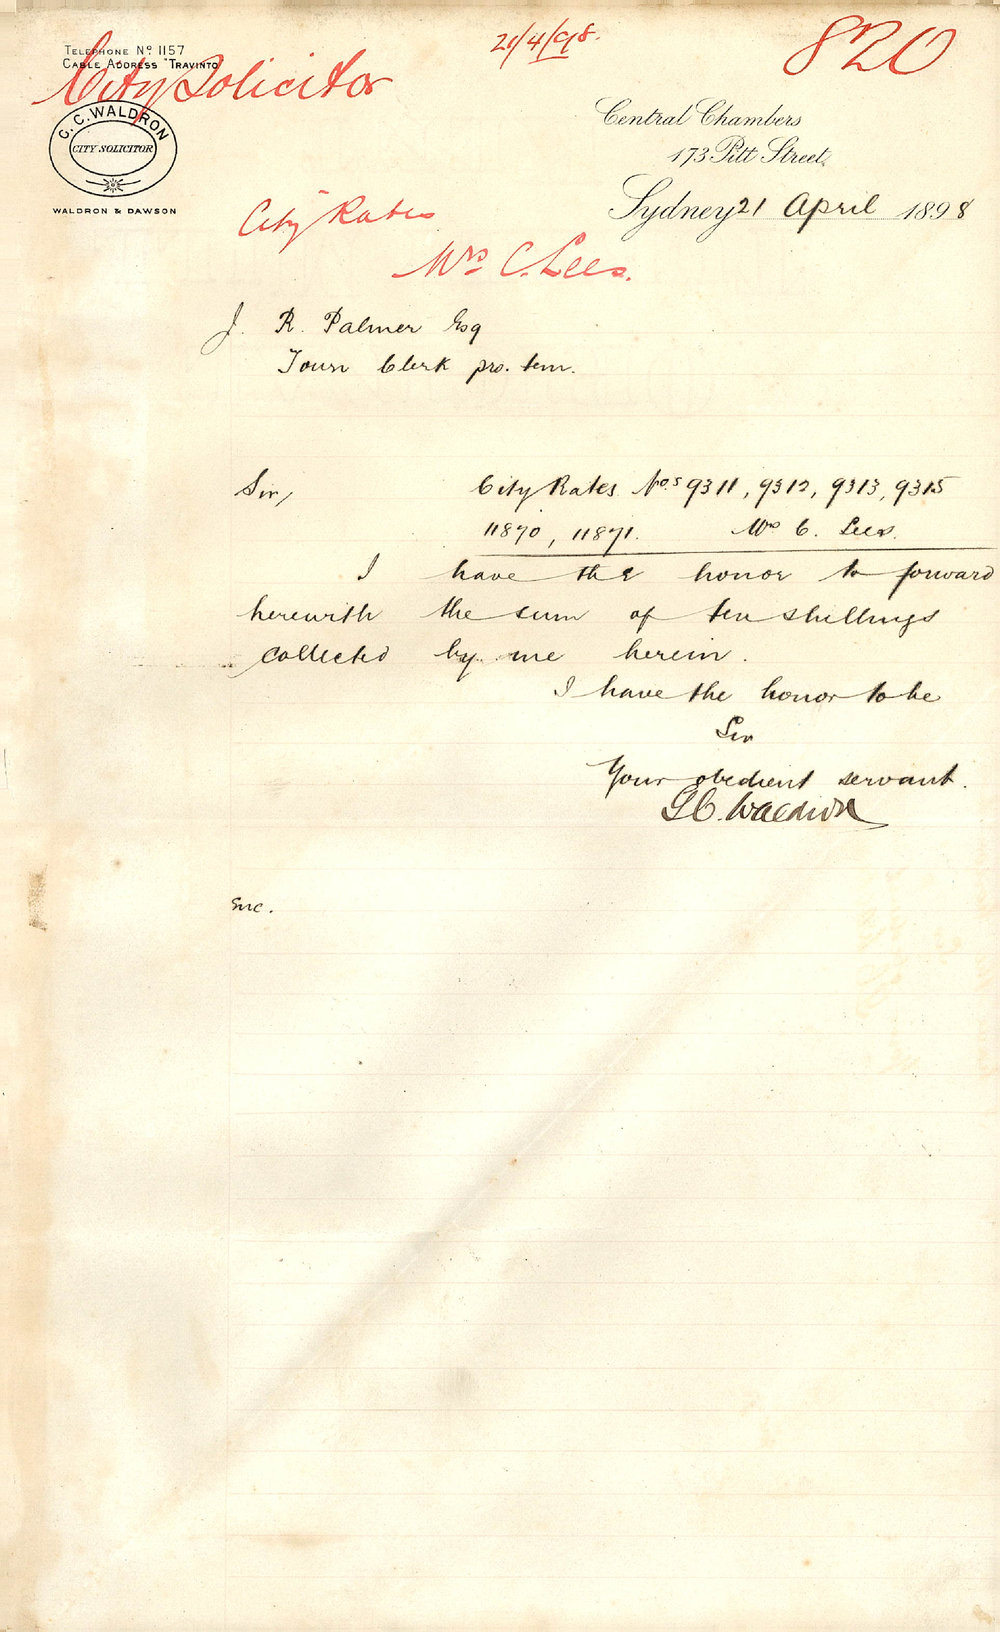 21/4/98.
820
Telephone No. 1157
Cable Address "Travinto"
City Solicitor
G. C. WALDRON
CITY SOLICITOR
WALDRON & DAWSON
Central Chambers
173 Pitt Street,
Sydney 21 April 1898
City Rates
Mrs C. Lees.
J. R. Palmer Esq
Town Clerk pro. tem.
Sir,
City Rates Nos 9311, 9312, 9313, 9315
11870, 11871. Mrs C. Lees.
I have the honor to forward
herewith the sum of ten shillings
collected by me herein.
I have the honor to be
Sir
Your obedient servant.
G C. Waldron
Enc.